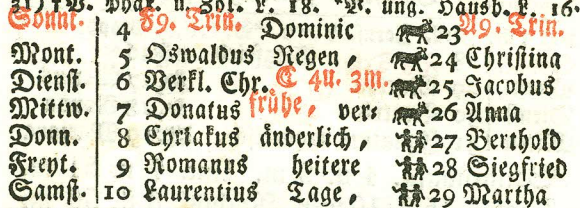 Sonnt. 4 F9. Trin. Dominic 23 A9. Trin.
Mont. 5 Oswaldus Regen, 24 Christina
Dienst. 6 Verkl. Chr. C 4u. 3m. 25 Jacobus
Mittw. 7 Donatus frühe, ver= 26 Anna
Donn. 8 Cyriakus änderlich, 27 Berthold
Freyt. 9 Romanus heitere 28 Siegfried
Samst. 10 Laurentius Tage, 29 Martha